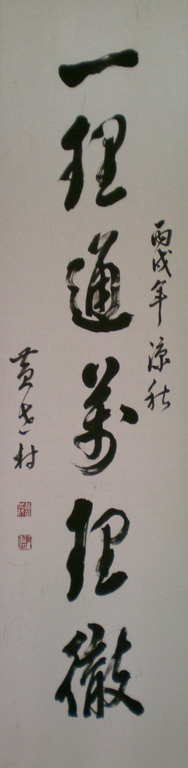 一理通萬理徹
丙戌年涼秋
黃老村